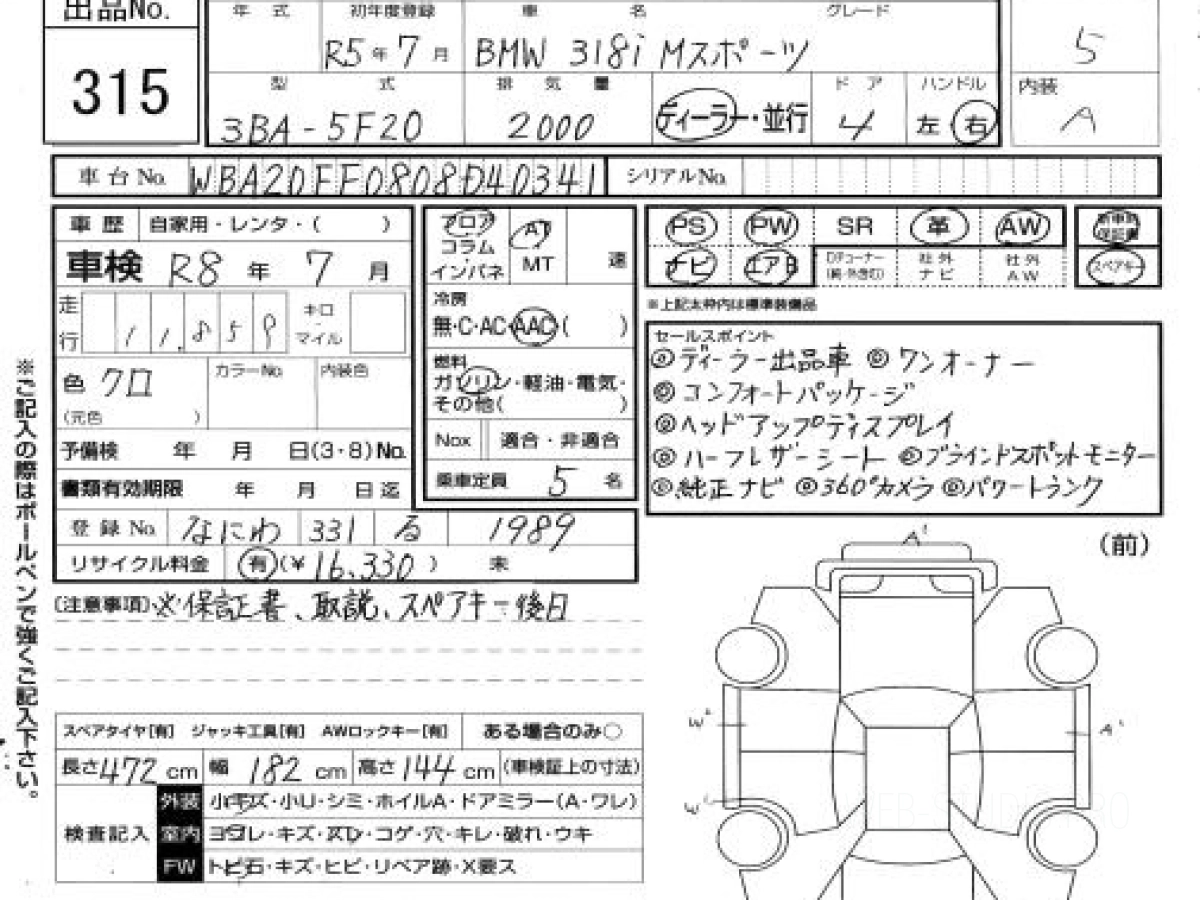 出品No.
315
年式 初年度登録 車名 グレード
R5年7月 BMW 318i Mスポーツ
5
型式 排気量 ドア ハンドル 内装
3BA-5F20 2000 ディーラー・並行 4 左・右 A
車台No. WBA20FF0808D40341 シリアルNo.
車歴 自家用・レンタ・( )
車検 R8年 7月
走行 11,859 キロ・マイル
色 クロ カラーNo. 内装色
(元色 )
予備検 年 月 日(3・8)No.
書類有効期限 年 月 日迄
登録No. なにわ 331 る 1989
リサイクル料金 有(¥16,330) 未
フロア コラム・インパネ AT MT 速
冷房
無・C・AC・AAC( )
燃料
ガソリン・軽油・電気・
その他( )
Nox 適合・非適合
乗車定員 5 名
PS PW SR 革 AW 新車時保証書
ナビ エアB 社外ナビ 社外AW スペアキー
※上記太枠内は標準装備品
セールスポイント
◎ディーラー出品車 ◎ワンオーナー
◎コンフォートパッケージ
◎ヘッドアップディスプレイ
◎ハーフレザーシート ◎ブラインドスポットモニター
◎純正ナビ ◎360°カメラ ◎パワートランク
(注意事項)※保証書、取説、スペアキー後日
スペアタイヤ[有] ジャッキ工具[有] AWロックキー[有] ある場合のみ○
長さ472cm 幅182cm 高さ144cm (車検証上の寸法)
検査記入
外装 小キズ・小U・シミ・ホイルA・ドアミラー(A・ワレ)
室内 ヨゴレ・キズ・スレ・コゲ・穴・キレ・破れ・ウキ
FW トビ石・キズ・ヒビ・リペア跡・X要ス
※ご記入の際はボールペンで強くご記入下さい。
(前)
A'
W'
A'
W'